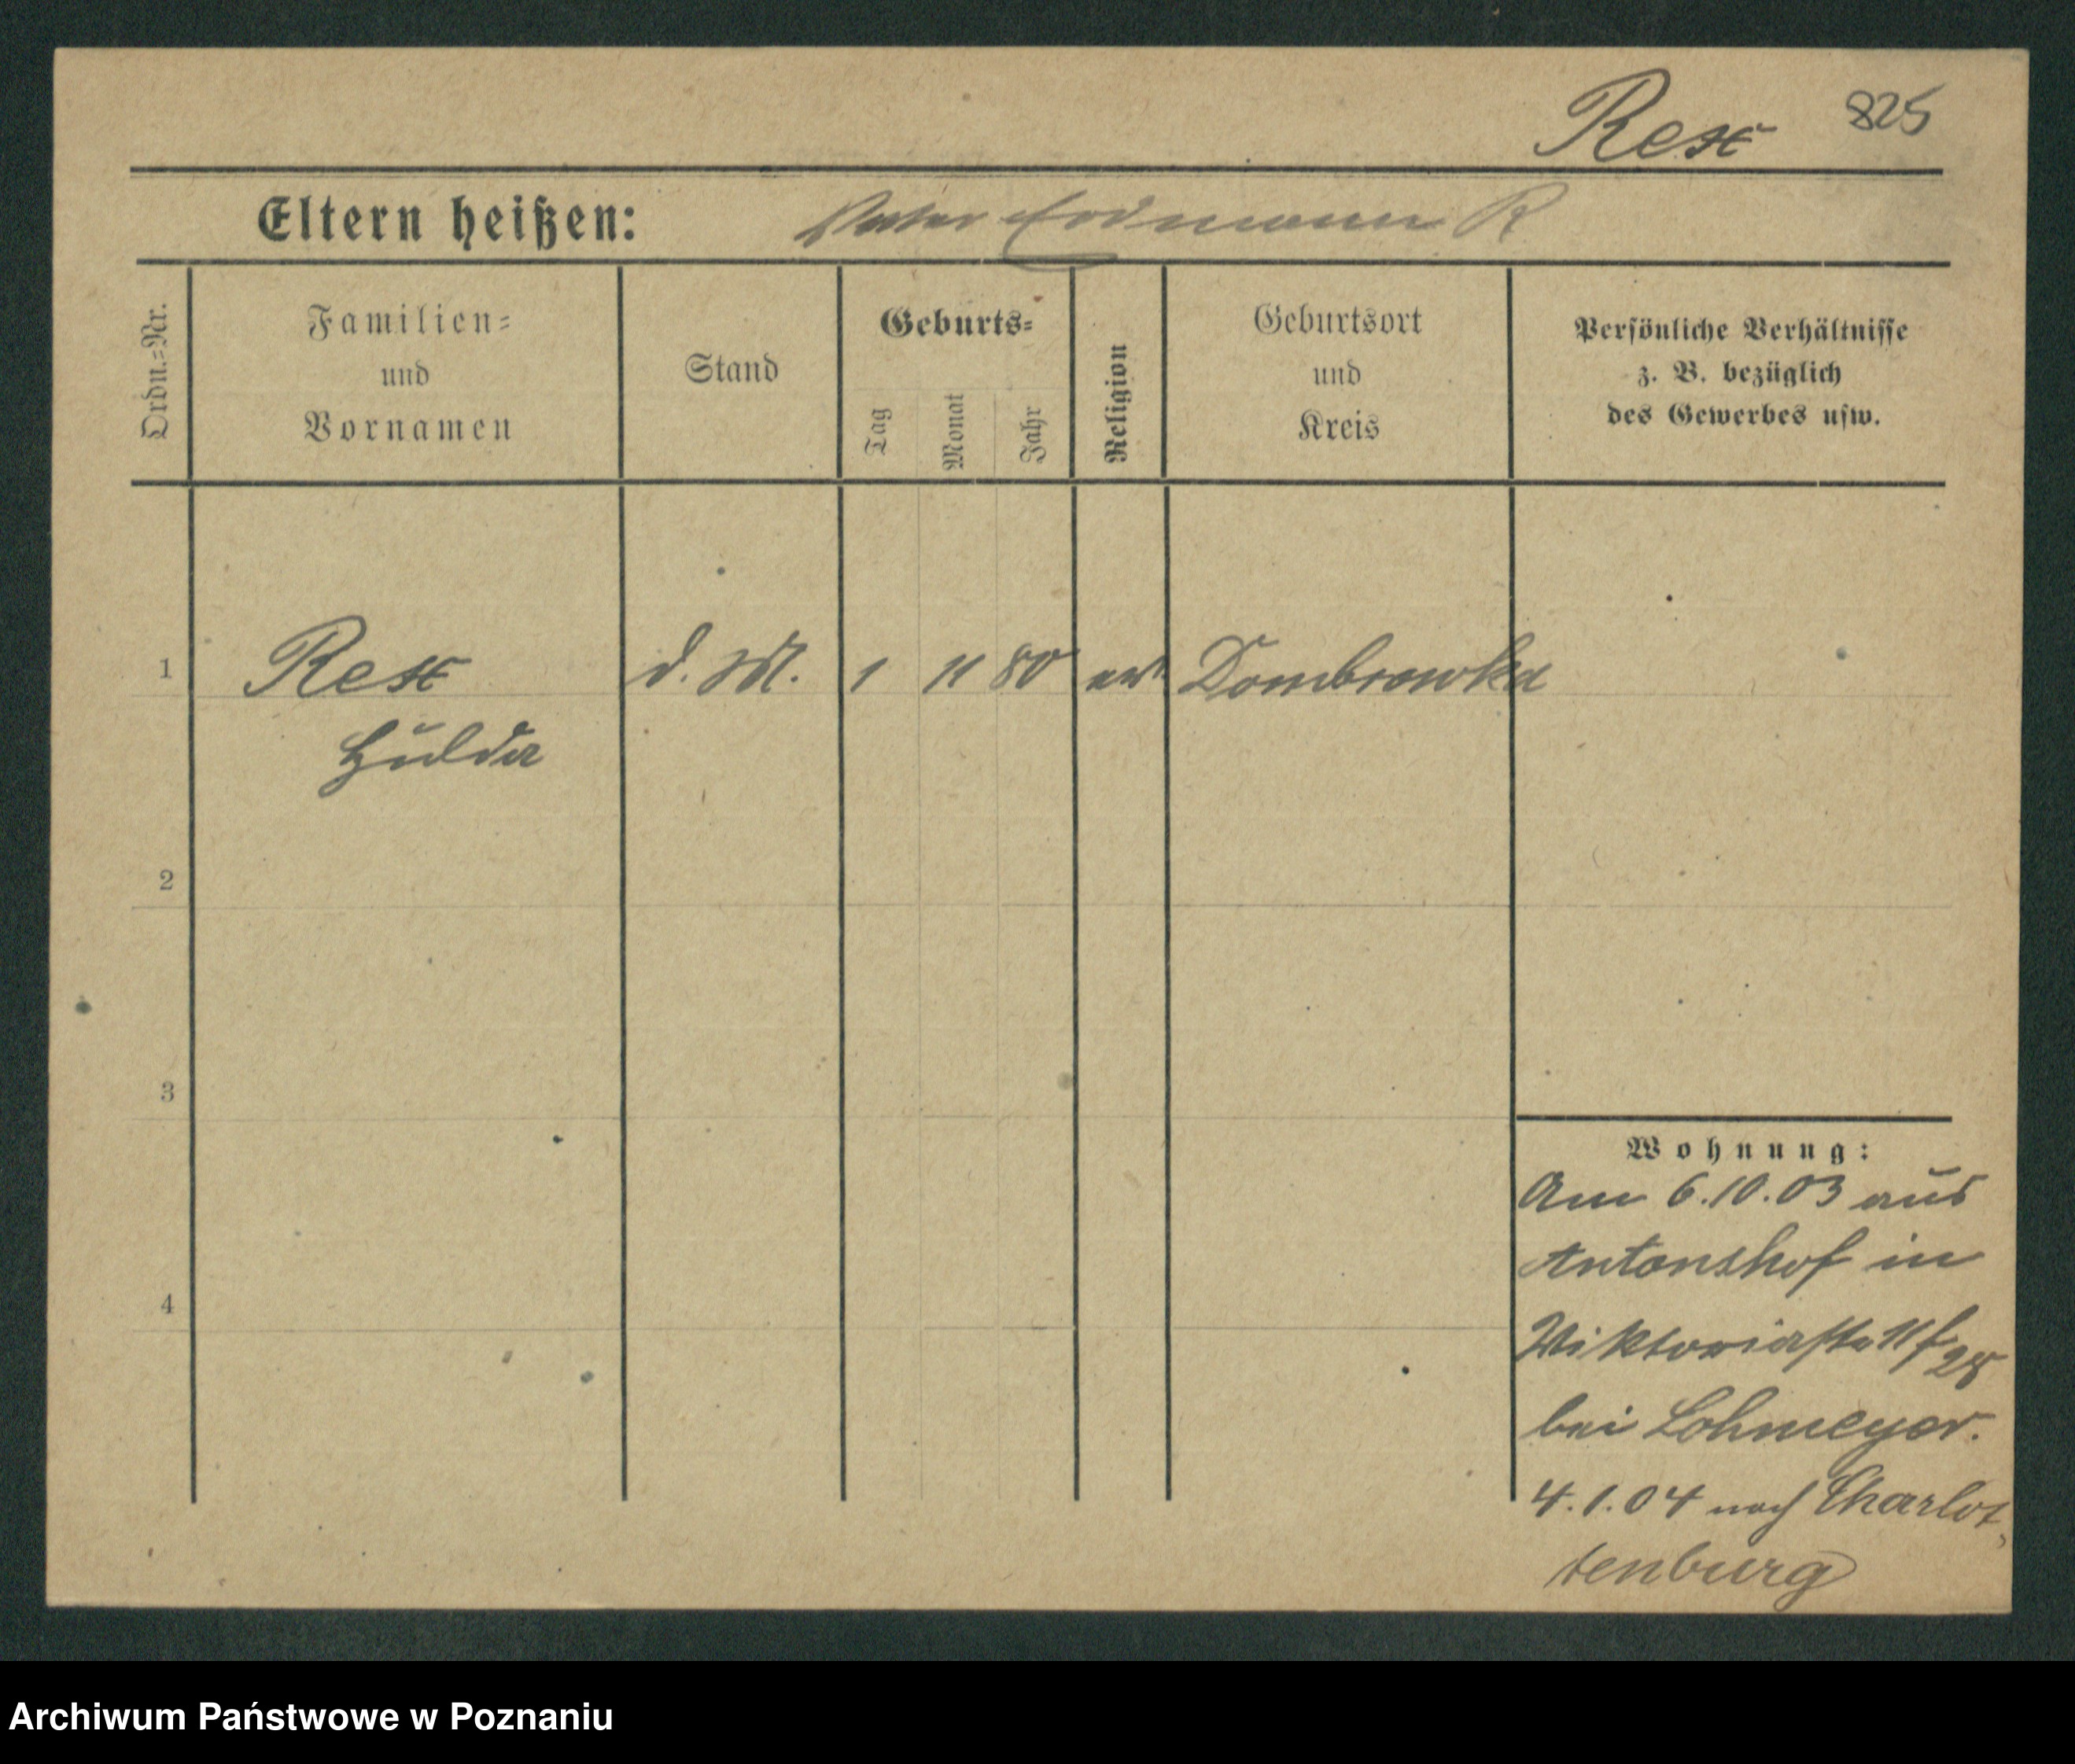 Rex 825
Eltern heißen: Vater Erdmann R
Ordn.=Nr.
Familien=
und
Vornamen
Stand
Geburts=
Tag
Monat
Jahr
Religion
Geburtsort
und
Kreis
Persönliche Verhältnisse
z. B. bezüglich
des Gewerbes usw.
1 Rex d. M. 1 11 80 ev. Dombrowka
Hulda
2
3
4
Wohnung:
Am 6.10.03 aus
Antonshof in
Viktoriastr
bei Lohmeyer.
4.1.04 nach Charlot
tenburg
Archiwum Państwowe w Poznaniu